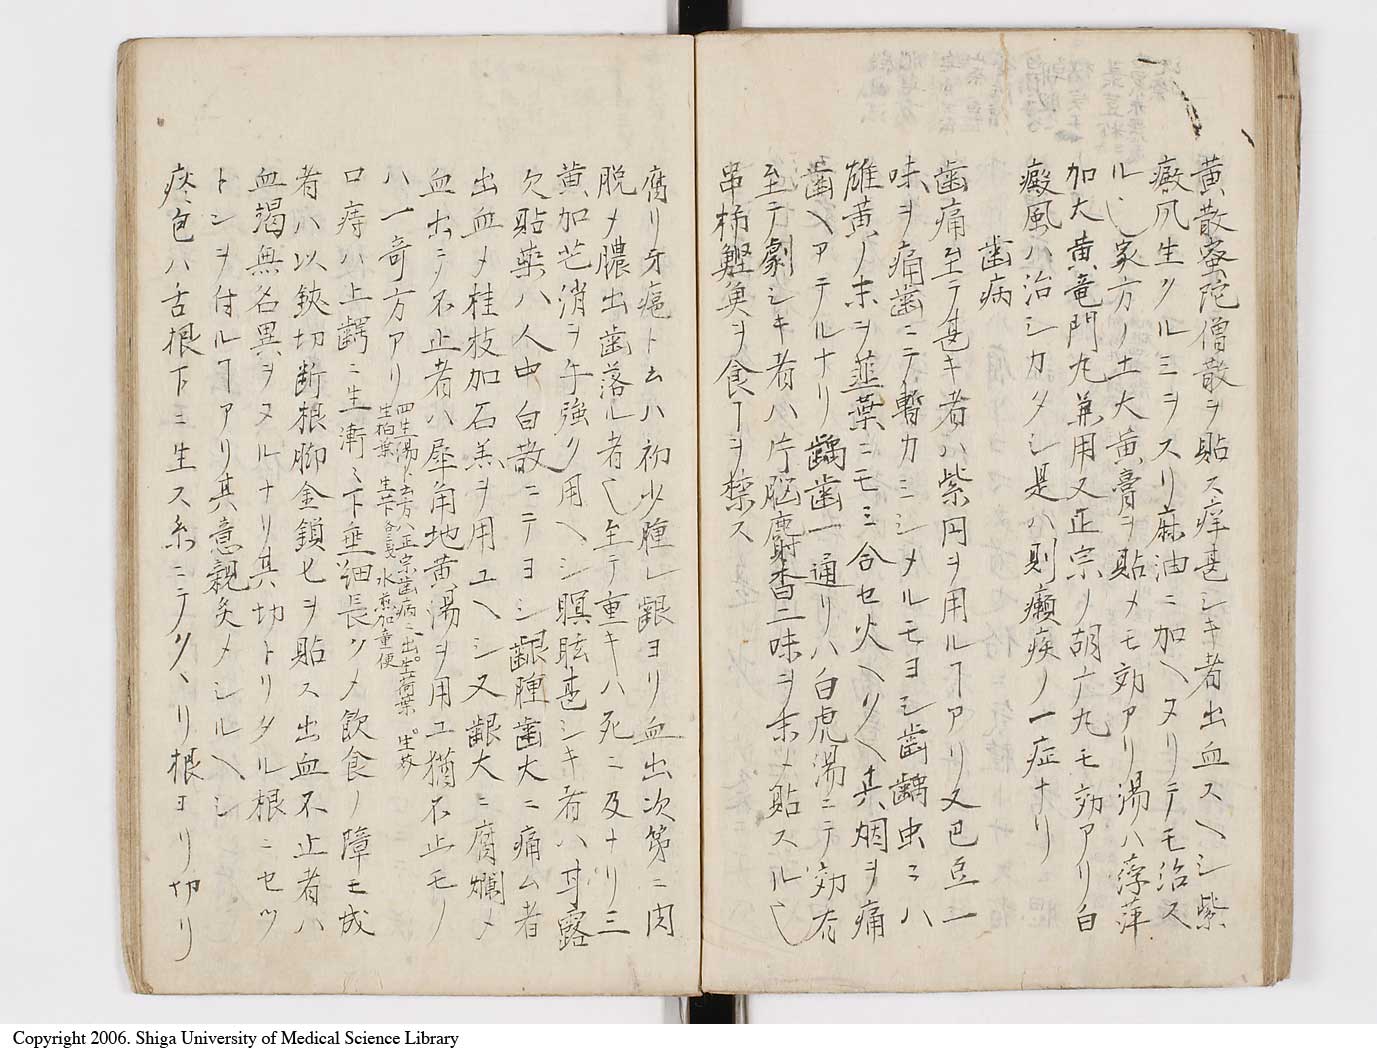 黄散蜜陀僧散ヲ貼ス痒甚シキ者出血スヘシ紫
癜風生クルミヲスリ麻油ニ加ヘヌリテモ治ス
ル也家方ノ土大黄膏ヲ貼メモ効アリ湯ハ浮萍
加大黄竜門丸兼用又正宗ノ胡广丸モ効アリ白
癜風ハ治シカタシ是ハ則癩疾ノ一症ナリ
歯病
歯痛至テ甚キ者ハ紫円ヲ用ルヿアリ又巴豆一
味ヲ痛歯ニテ暫カミシメルモヨシ歯齲虫ミハ
雄黄ノ末ヲ韮葉ニモミ合セ火ヘクヘ其烟ヲ痛
歯ヘアテルナリ齲歯一通リハ白虎湯ニテ効有
至テ劇シキ者ハ片脳麝香二味ヲ末メ貼スル也
串柿鰹魚ヲ食ヿヲ禁ス
腐リ牙疳ト云ハ初少腫レ齦ヨリ血出次第ニ肉
脱メ膿出歯落ル者也至テ重キハ死ニ及ナリ三
黄加芒消ヲ手強ク用ヘシ瞑眩甚シキ者ハ甘露
欠貼薬ハ人中白散ニテヨシ齦腫歯大ニ痛ム者
出血メ桂枝加石羔ヲ用ユヘシ又齦大ニ腐爛メ
血出テ不止者ハ犀角地黄湯ヲ用ユ猶不止モノ
ハ一奇方アリ
四生湯ト云方ハ正宗歯病ニ出生荷葉 生艾
生柏葉 生下各〻 水煎加童便
口痔ハ上齶ニ生漸〻下垂細長クメ飲食ノ障モ成
者ハ以鋏切断根脚金鎖匕ヲ貼ス出血不止者ハ
血竭無名異ヲヌルナリ其切トリタル根ニセツ
トンヲ付ルヿアリ其意親炙メシルヘシ
痰包ハ舌根下ニ生ス糸ニテクヽリ根ヨリ切リ
Copyright 2006. Shiga University of Medical Science Library